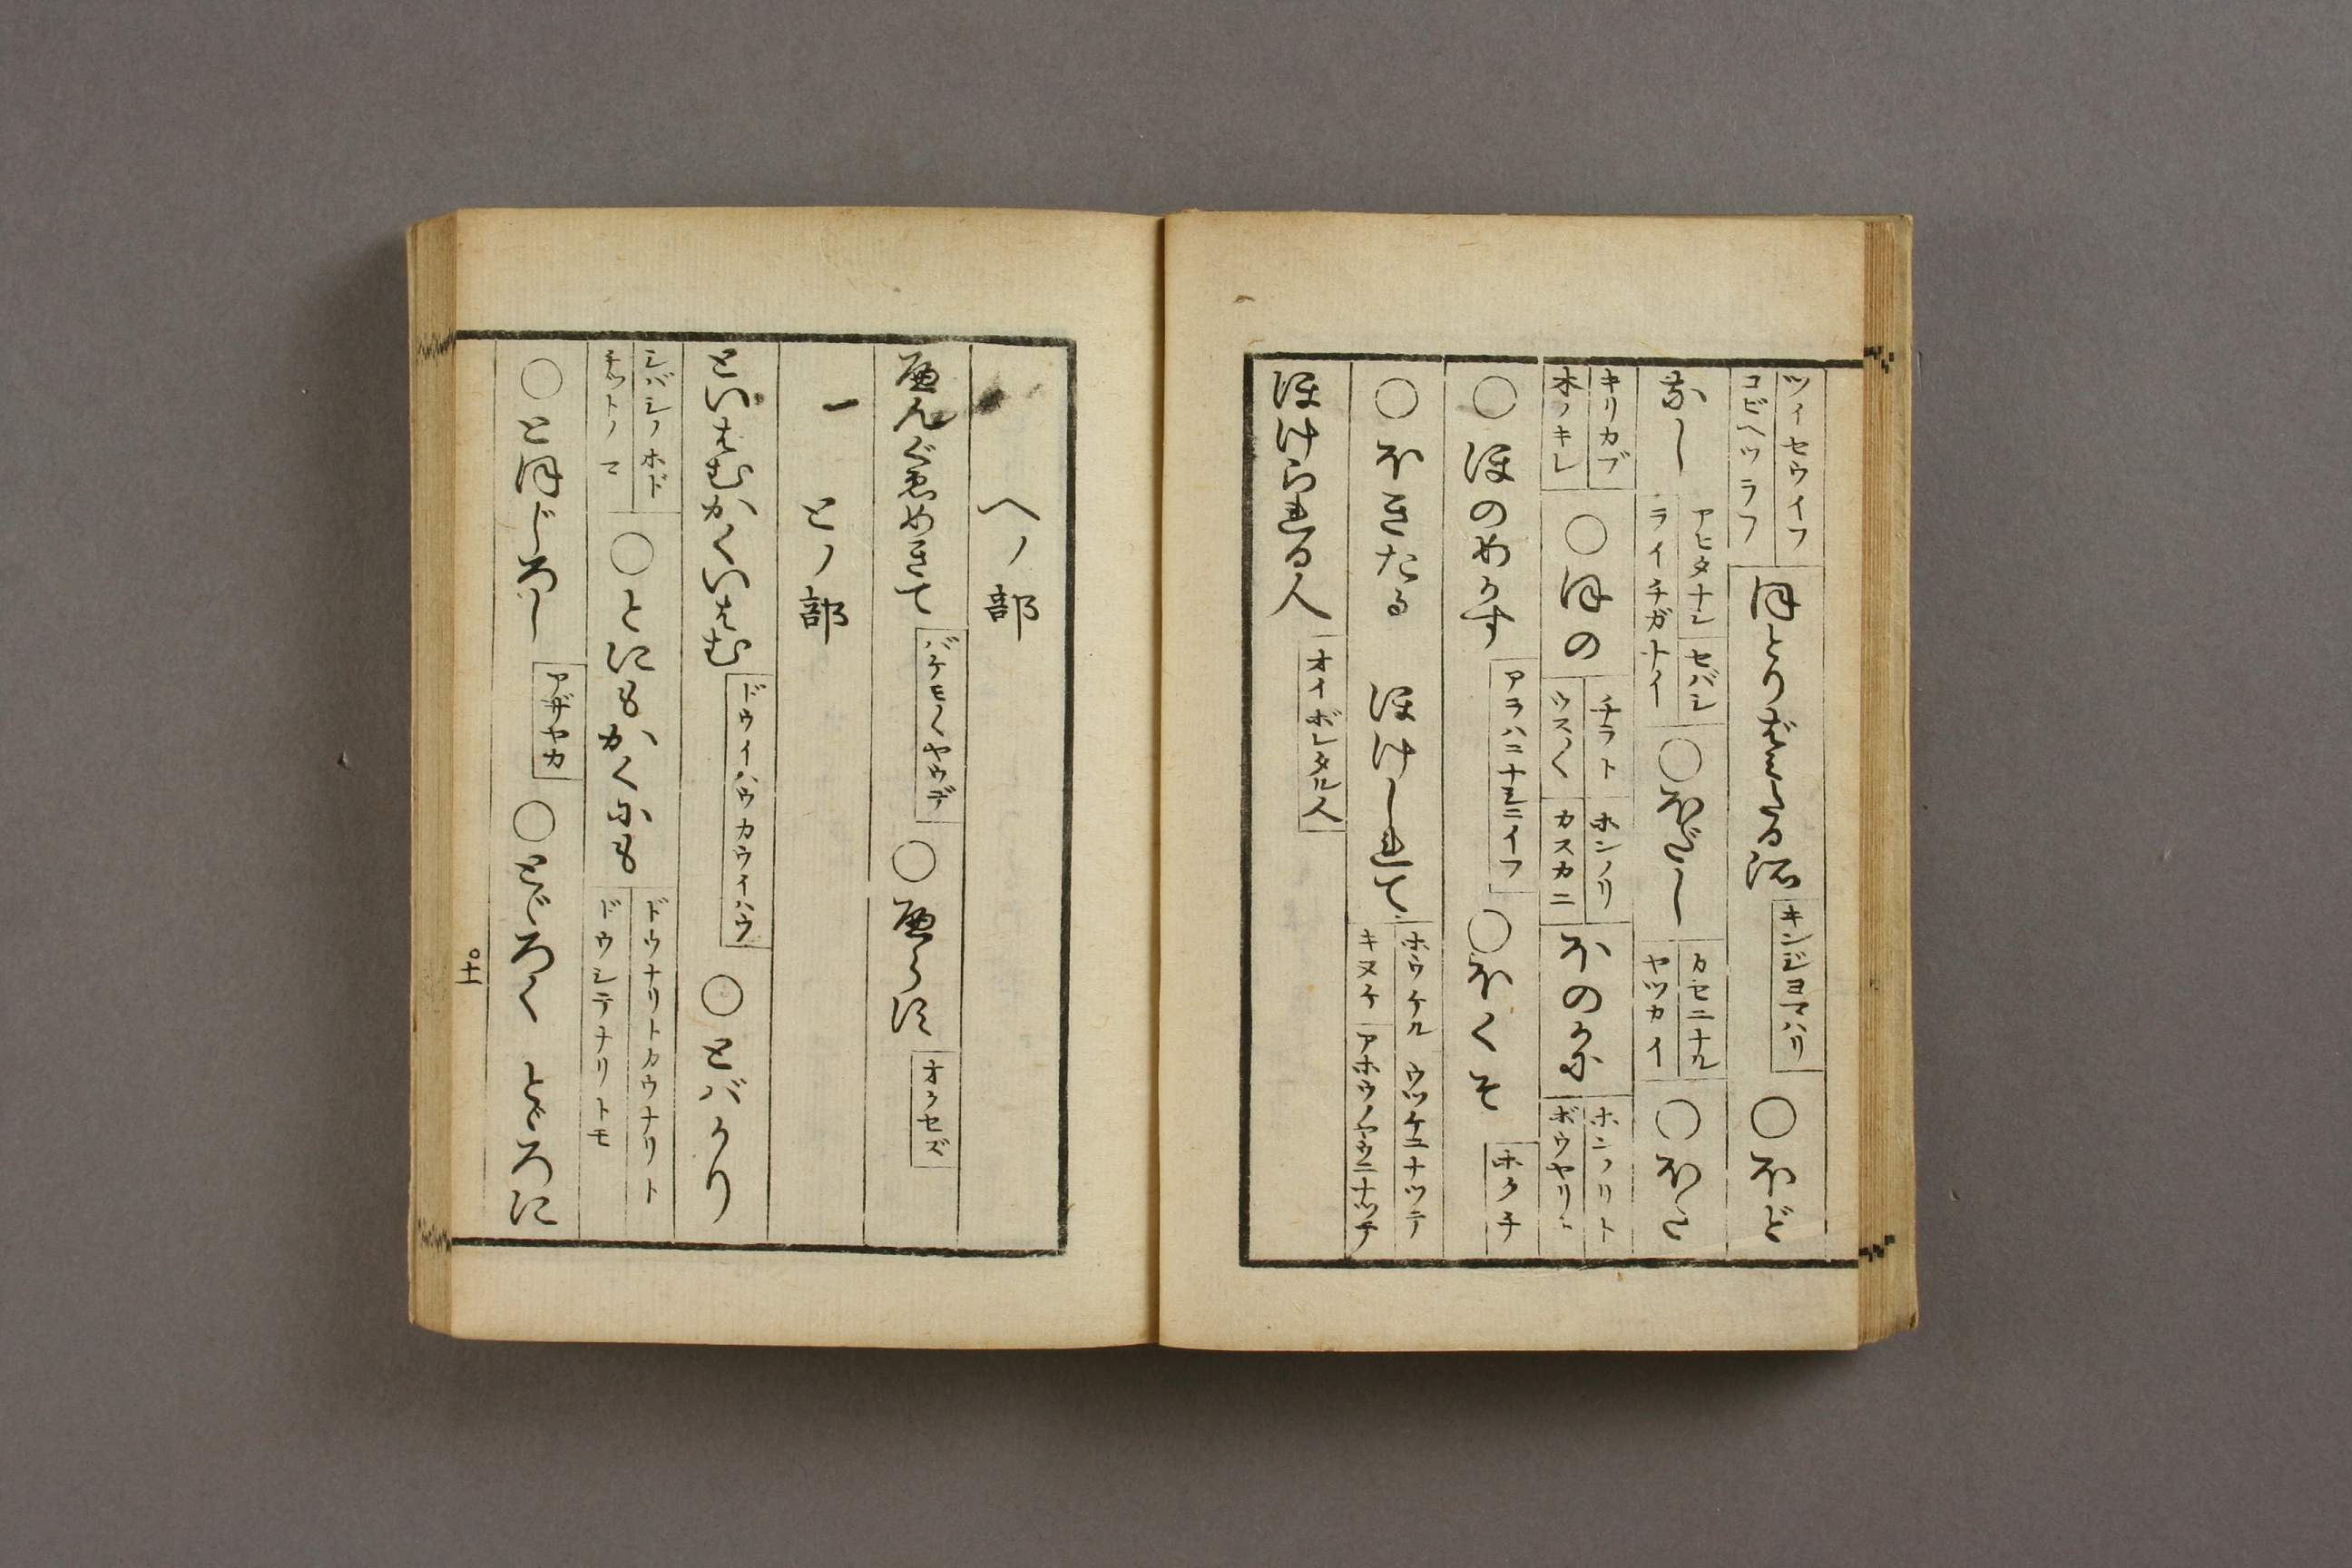 ツイセウイフ
コビヘツラフ
キンジヨマハリ
○ほど
なし
アヒタナシ
ライイチガナイ
セバシ
○ほだし
カセニナル
ヤツカイ
○ほた
キリカブ
木ノキレ
○ほの
チラト
ウスく
ホンノリ
カスカニ
ほのかに
ホンノリト
ボウヤリト
○ほのめかす
アラハニナシニイフ
○ほくそ
ホクチ
○ほきたる　ほけしれて
ホウケル　ウツケニナツテ
キヌケ　アホウノヤウニナツテ
ほけられる人
オイボレタル人
へノ部
へんぐゑめきて
バケモノヽヤウデ
○へらに
オクセズ
一　とノ部
といはむかくいはむ
ドウイハウカウイハウ
○とバかり
シバシノホド
チツトノマ
○とにもかくにも
ドウナリトカウナリト
ドウシテナリトモ
○とほじろし
アザヤカ
○とゞろく　とゞろに